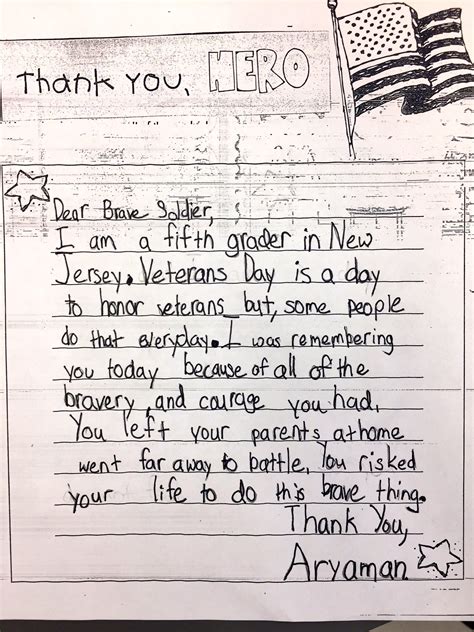 Thank You, HERO
Dear Brave Soldier,
I am a fifth grader in New
Jersey. Veterans Day is a day
to honor veterans but, some people
do that everyday. I was remembering
you today because of all of the
bravery and courage you had.
You left your parents at home
went far away to battle. You risked
your life to do this brave thing.
Thank You,
Aryaman